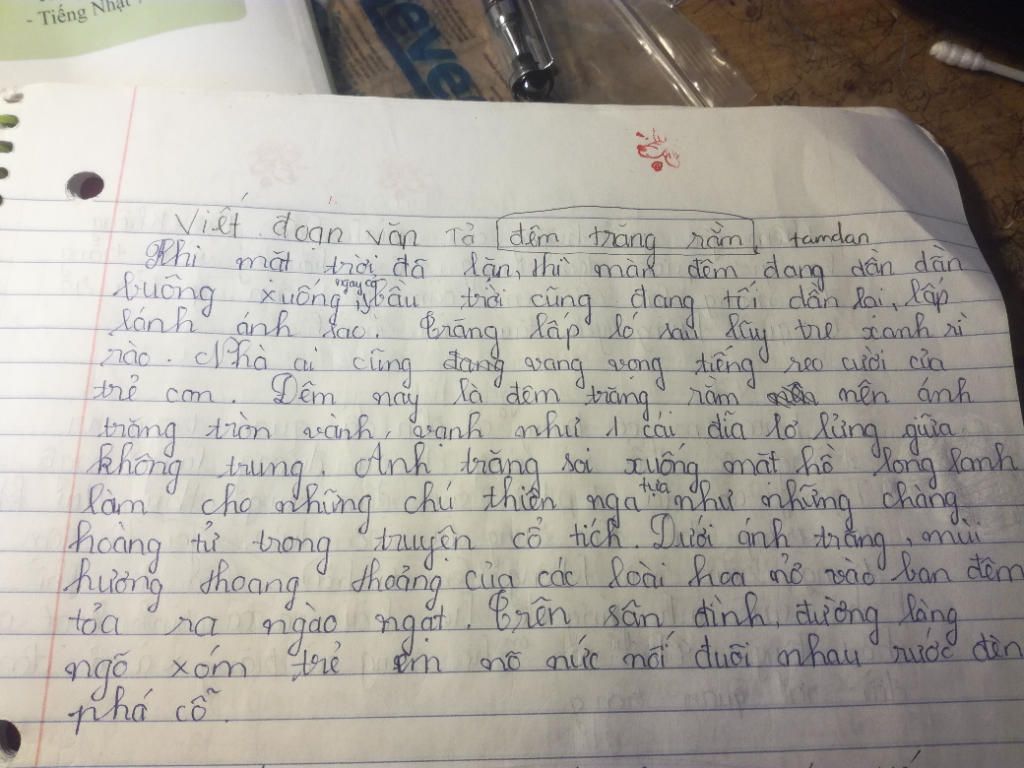 - Tiếng Nhật
eve
Viết đoạn văn tả đêm trăng rằm tamdan
Khi mặt trời đã lặn, thì màn đêm đang dần dần
buông xuống ngay cả bầu trời cũng đang tối dần lai, lấp
lánh ánh sao. Trăng lấp ló sau lũy tre xanh rì
rào. Nhà ai cũng đang vang vọng tiếng reo cười của
trẻ con. Đêm nay là đêm trăng rằm nên ánh
trăng tròn vành vạnh như 1 cái dĩa lơ lửng giữa
không trung. Ánh trăng soi xuống mặt hồ long lanh
làm cho những chú thiên nga tựa như những chàng
hoàng tử trong truyện cổ tích. Dưới ánh trăng, mùi
hương thoang thoảng của các loài hoa nở vào ban đêm
tỏa ra ngào ngạt. Trên sân đình, đường làng
ngõ xóm trẻ em nô nức nối đuôi nhau rước đèn
phá cỗ.